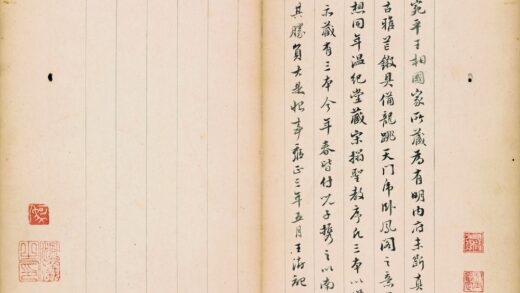 宛平王相國家所藏為有明内府未斷真
古雅芒鎩具備龍跳天門虎卧鳳閣之意
想同年温紀堂藏宋搨聖教序凡三本以
示藏有三本今年春皆付兒子携之以南
其勝負大是快事雍正三年五月王澍記